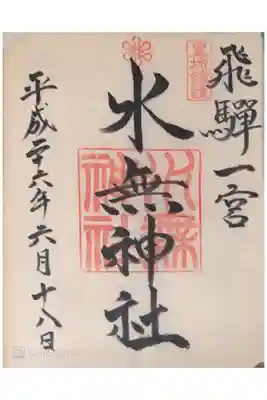 飛騨一宮
水無神社
平成二十六年六月十八日
水無神社